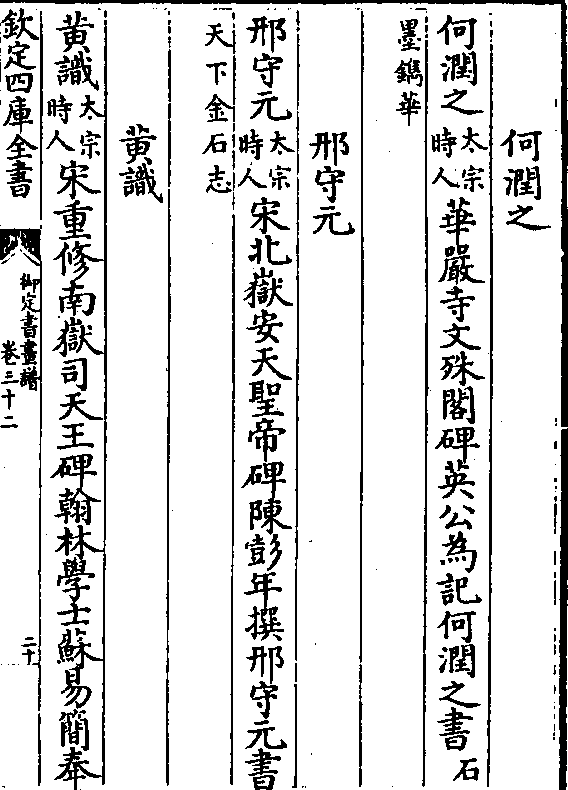 何潤之
何潤之太宗時人華嚴寺文殊閣碑英公為記何潤之書石
墨鐫華
邢守元
邢守元太宗時人宋北嶽安天聖帝碑陳彭年撰邢守元書
天下金石志
黄識
黄識太宗時人宋重修南嶽司天王碑翰林學士蘇易簡奉
欽定四庫全書
御定書畫譜
卷三十二
二十